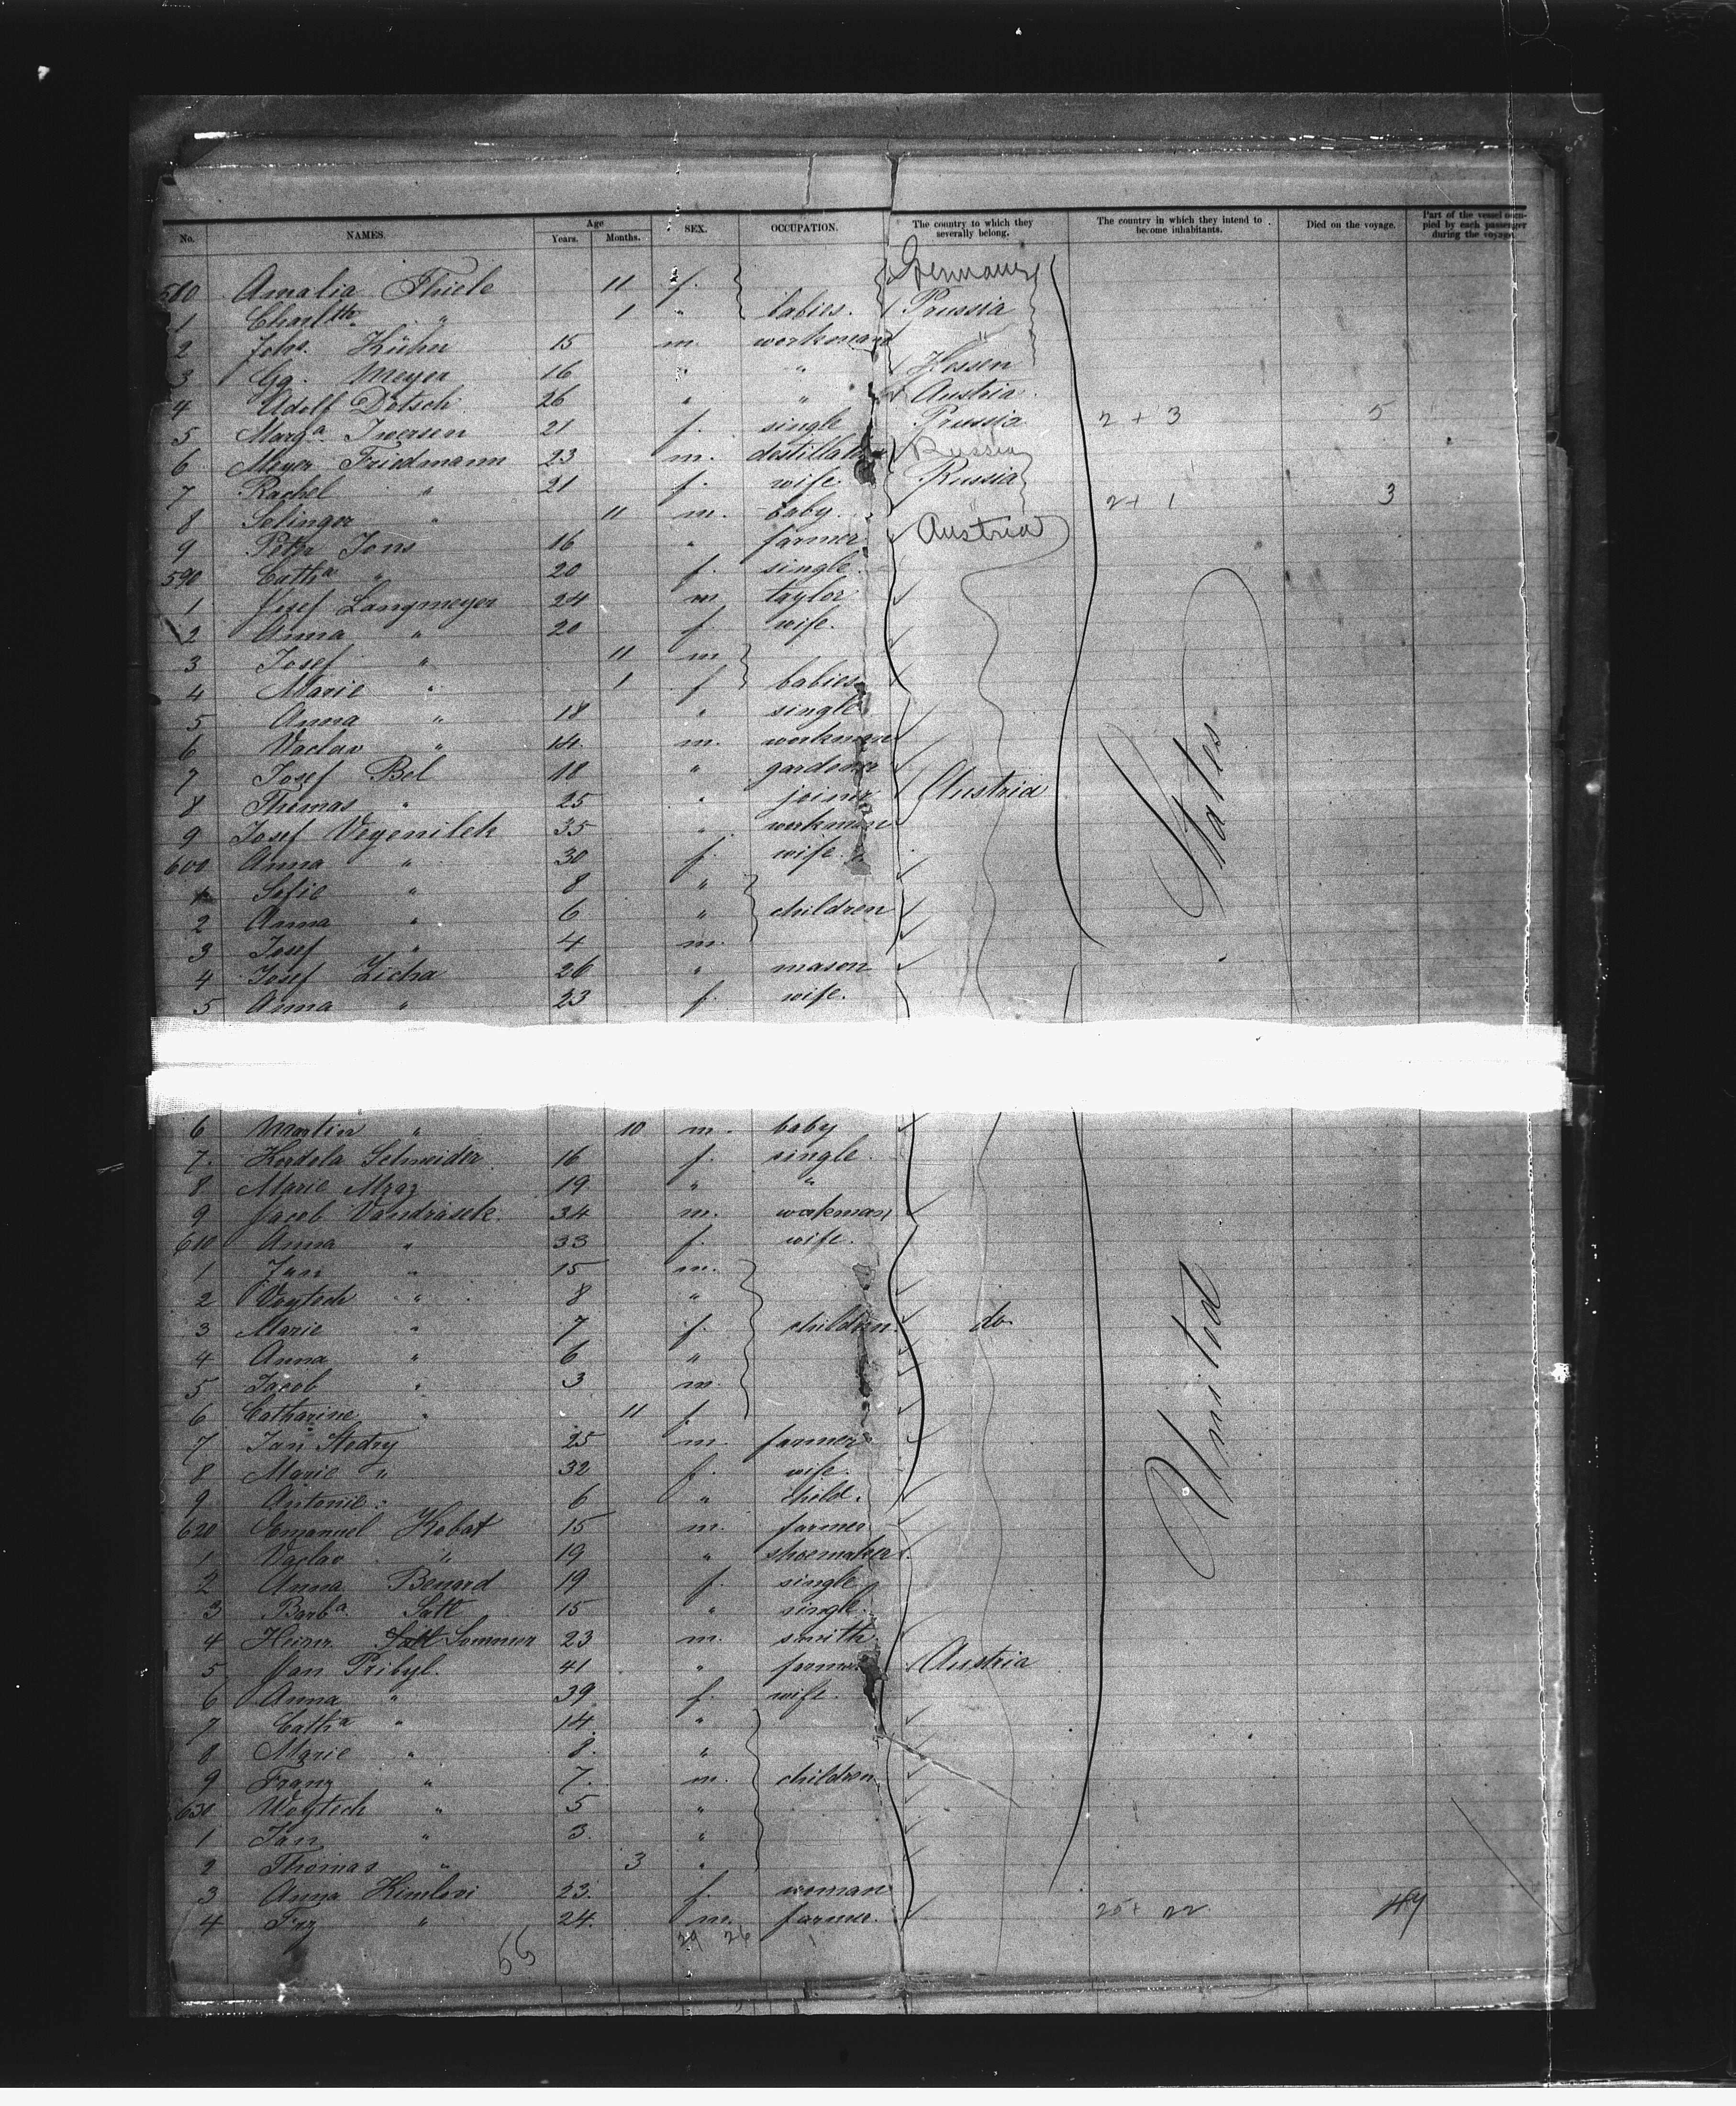 No. NAMES. Age Years. Months. SEX. OCCUPATION. The country to which they severally belong. The country in which they intend to become inhabitants. Died on the voyage. Part of the vessel occupied by each passenger during the voyage.
580 Amalia Thiele 11 f. Germany
1 Charltte " 1 " babies. Prussia
2 Johs. Kühn 15 m. workman "
3 Gg. Meyer 16 " " Hessen
4 Adolf Dotsch 26 " " Austria
5 Marga. Iversen 21 f. single Prussia 2 + 3 5
6 Meyer Friedmann 23 m. Russia
7 Rachel " 21 f. wife Russia
8 Selinger " 11 m. baby 2 + 1 3
9 Peter Jons 16 " farmer Austria
590 Catha " 20 f. single
1 Josef Langmeyer 24 m taylor
2 Anna " 20 f wife.
3 Josef " 11 m
4 Marie " 1 f babies
5 Anna " 18 " single
6 Vaclav " 14 m. workman
7 Josef Bel 18 " gardener
8 Thomas " 25 " joiner Austria
9 Josef 35 " workman
600 Anna " 30 f. wife
Sofie " 8 "
2 Anna " 6 " children
3 Josef " 4 m.
4 Josef Zicha 26 " mason
5 Anna " 23 f. wife.
States
6 Martin " 10 m. baby
7. Kordela Schneider 16 f. single
8 Marie Mraz 19 " "
9 Jacob Vandrasek 34 m. workman
610 Anna " 33 f. wife.
1 Jan " 15 m.
2 Voytech " 8 "
3 Marie " 7 f. children do
4 Anna " 6 "
5 Jacob " 3 m.
6 Catharine " 11 f.
7 Jan Stedry 25 m farmer
8 Marie " 32 f. wife
9 Antonie " 6 " child.
620 Emanuel Kabat 15 m. farmer
1 Vaclav " 19 " shoemaker
2 Anna Benard 19 f. single
3 Barba. Satt 15 " single
4 Heinr. Sommer 23 m. smith
5 Jan Pribyl. 41 " farmer Austria
6 Anna " 39 f. wife
7 Catha " 14 "
8 Marie " 8. "
9 Franz " 7. m. children
630 Woytech " 5 "
1 Jan " 3. "
2 Thomas " 3 "
3 Anna 23. f. woman
4 Frz " 24. m. farmer. 25 + 22
United
55 29 26